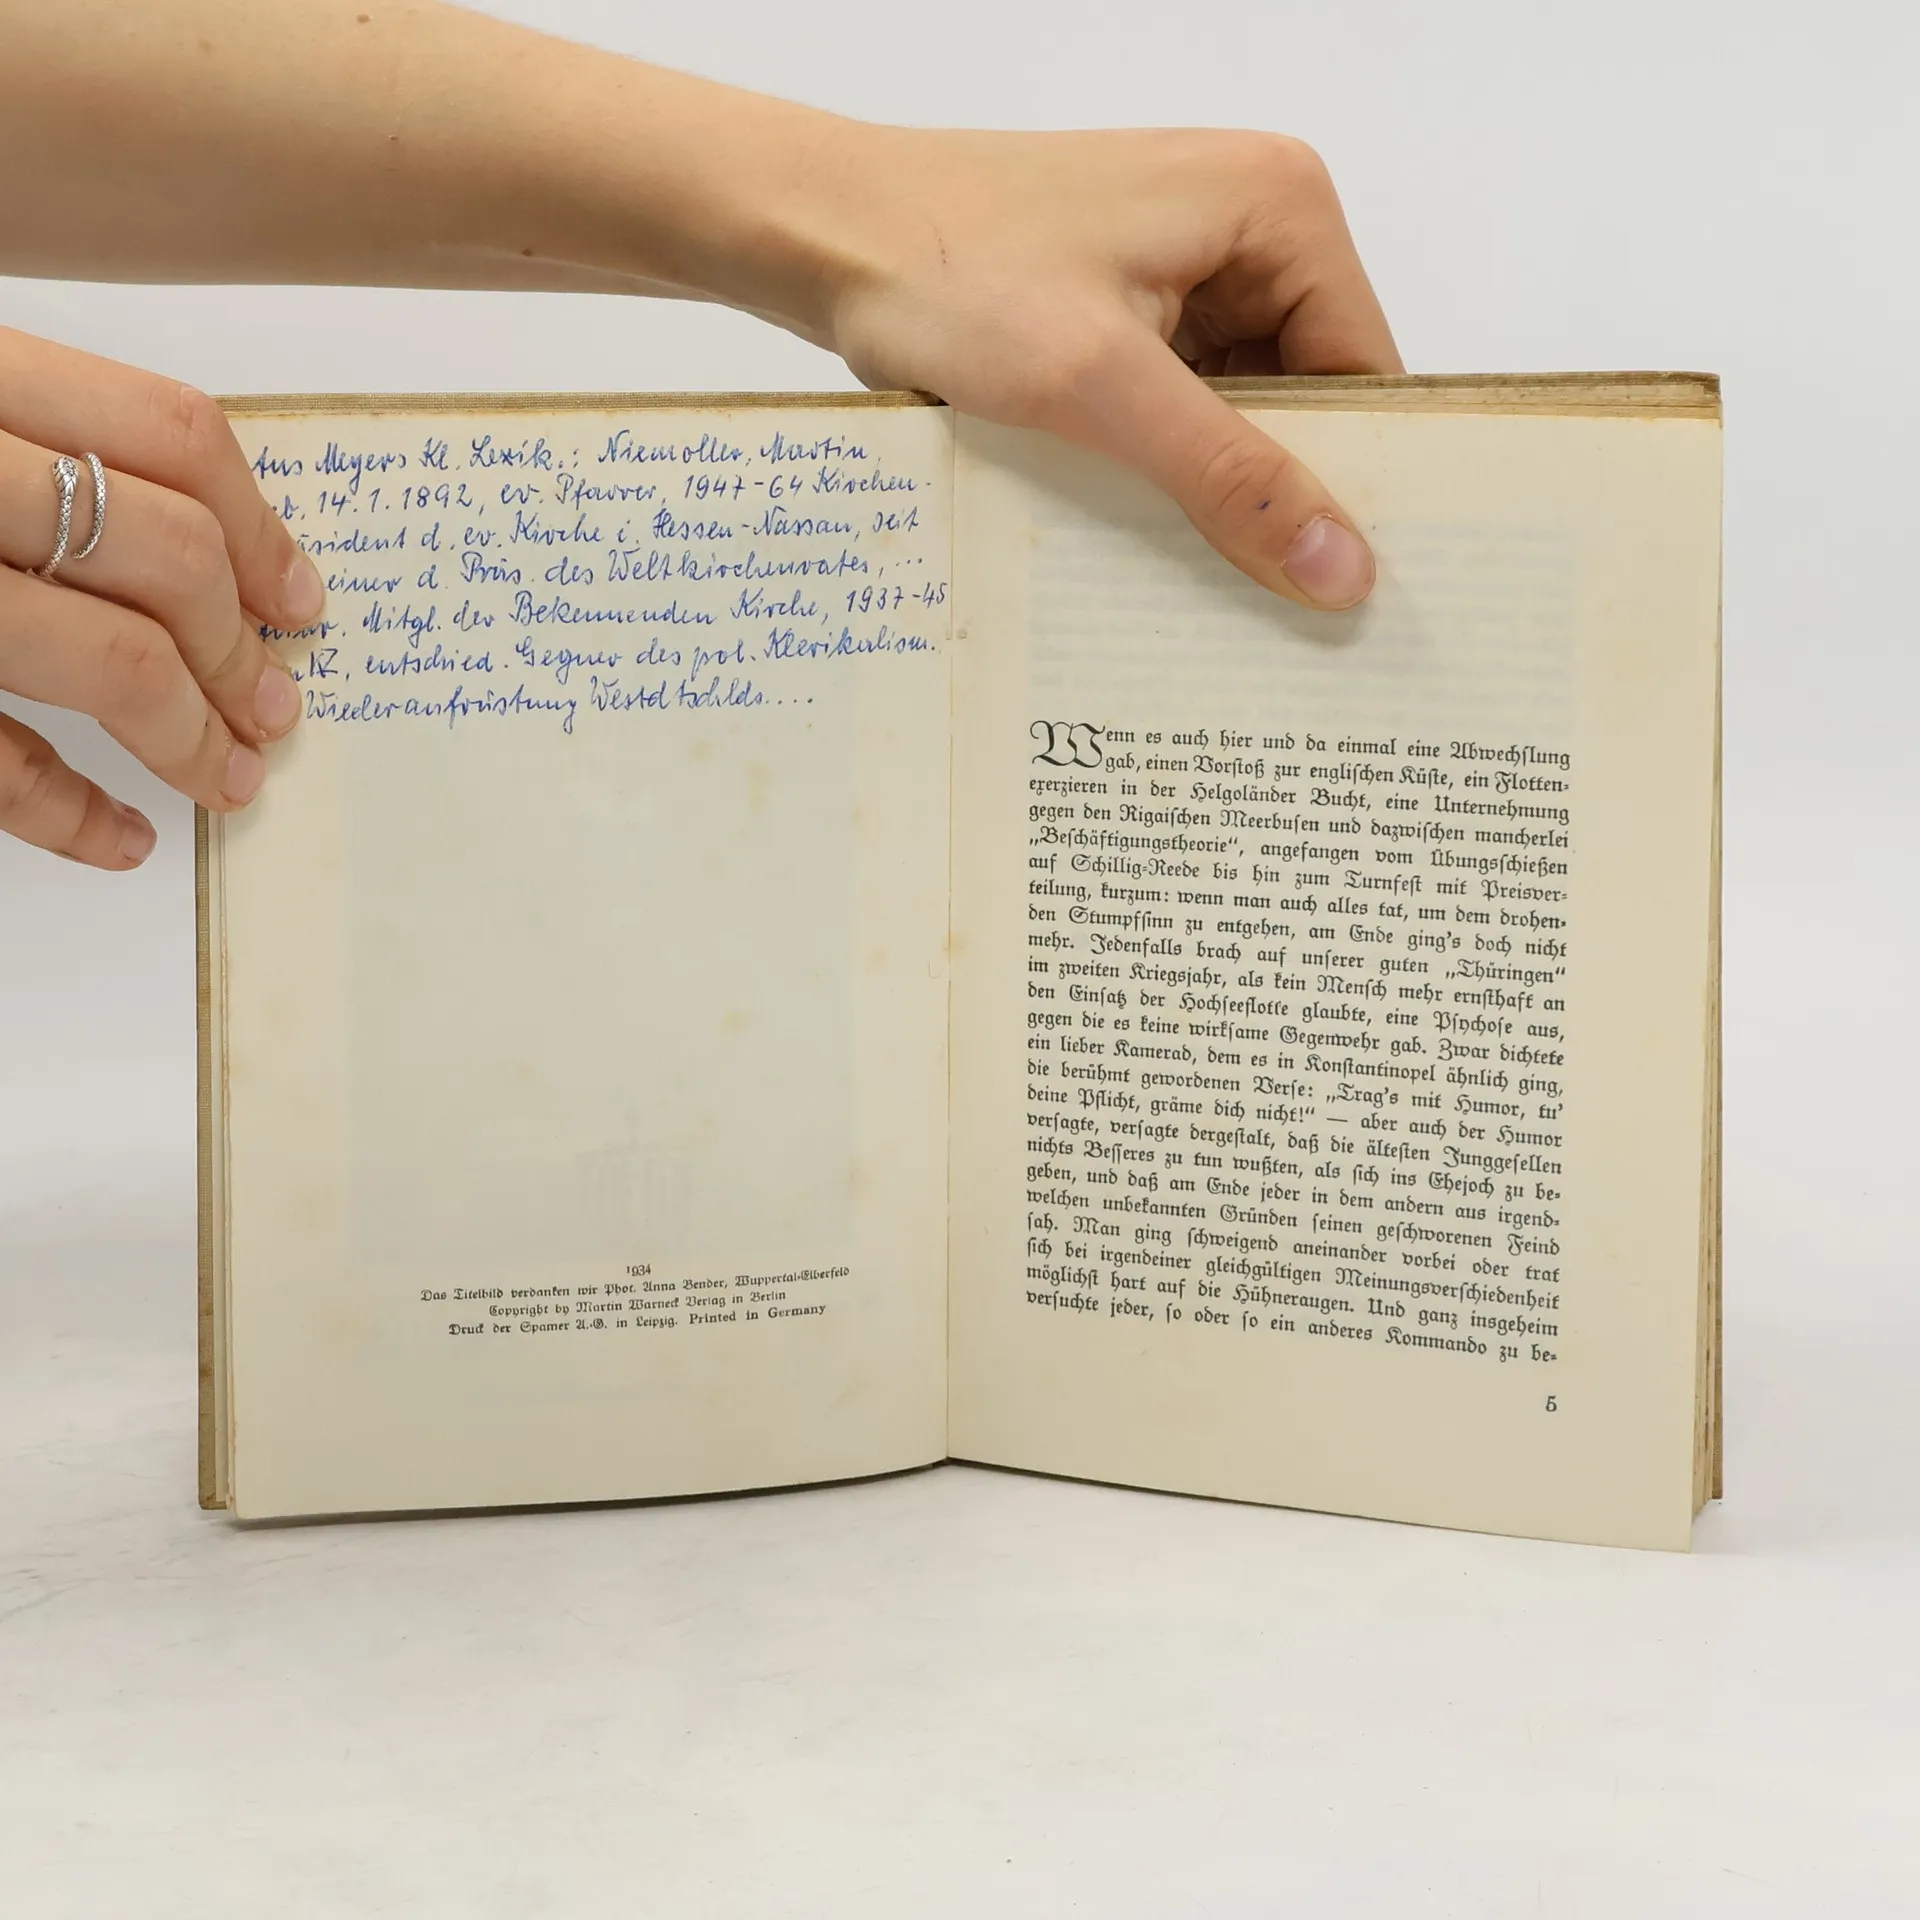 Aus Meyers Kl. Lexik.: Niemöller, Martin,
14.1.1892, ev. Pfarrer, 1947-64 Kirchen-
präsident d. ev. Kirche i. Hessen-Nassau, seit
einer d. Präs. des Weltkirchenrates, ...
Mitgl. der Bekennenden Kirche, 1937-45
KZ, entschied. Gegner des pol. Klerikalism.
Wiederaufrüstung Westdtschlds....
1934
Das Titelbild verdanken wir Phot. Anna Bender, Wuppertal-Elberfeld
Copyright by Martin Warneck Verlag in Berlin
Druck der Spamer A.-G. in Leipzig. Printed in Germany
Wenn es auch hier und da einmal eine Abwechslung
gab, einen Vorstoß zur englischen Küste, ein Flotten-
exerzieren in der Helgoländer Bucht, eine Unternehmung
gegen den Rigaischen Meerbusen und dazwischen mancherlei
„Beschäftigungstheorie“, angefangen vom Übungsschießen
auf Schillig-Reede bis hin zum Turnfest mit Preisver-
teilung, kurzum: wenn man auch alles tat, um dem drohen-
den Stumpfsinn zu entgehen, am Ende ging's doch nicht
mehr. Jedenfalls brach auf unserer guten „Thüringen“
im zweiten Kriegsjahr, als kein Mensch mehr ernsthaft an
den Einsatz der Hochseeflotte glaubte, eine Psychose aus,
gegen die es keine wirksame Gegenwehr gab. Zwar dichtete
ein lieber Kamerad, dem es in Konstantinopel ähnlich ging,
die berühmt gewordenen Verse: „Trag's mit Humor, tu'
deine Pflicht, gräme dich nicht!“ — aber auch der Humor
versagte, versagte dergestalt, daß die ältesten Junggesellen
nichts Besseres zu tun wußten, als sich ins Ehejoch zu be-
geben, und daß am Ende jeder in dem andern aus irgend-
welchen unbekannten Gründen seinen geschworenen Feind
sah. Man ging schweigend aneinander vorbei oder trat
sich bei irgendeiner gleichgültigen Meinungsverschiedenheit
möglichst hart auf die Hühneraugen. Und ganz insgeheim
versuchte jeder, so oder so ein anderes Kommando zu be-
5